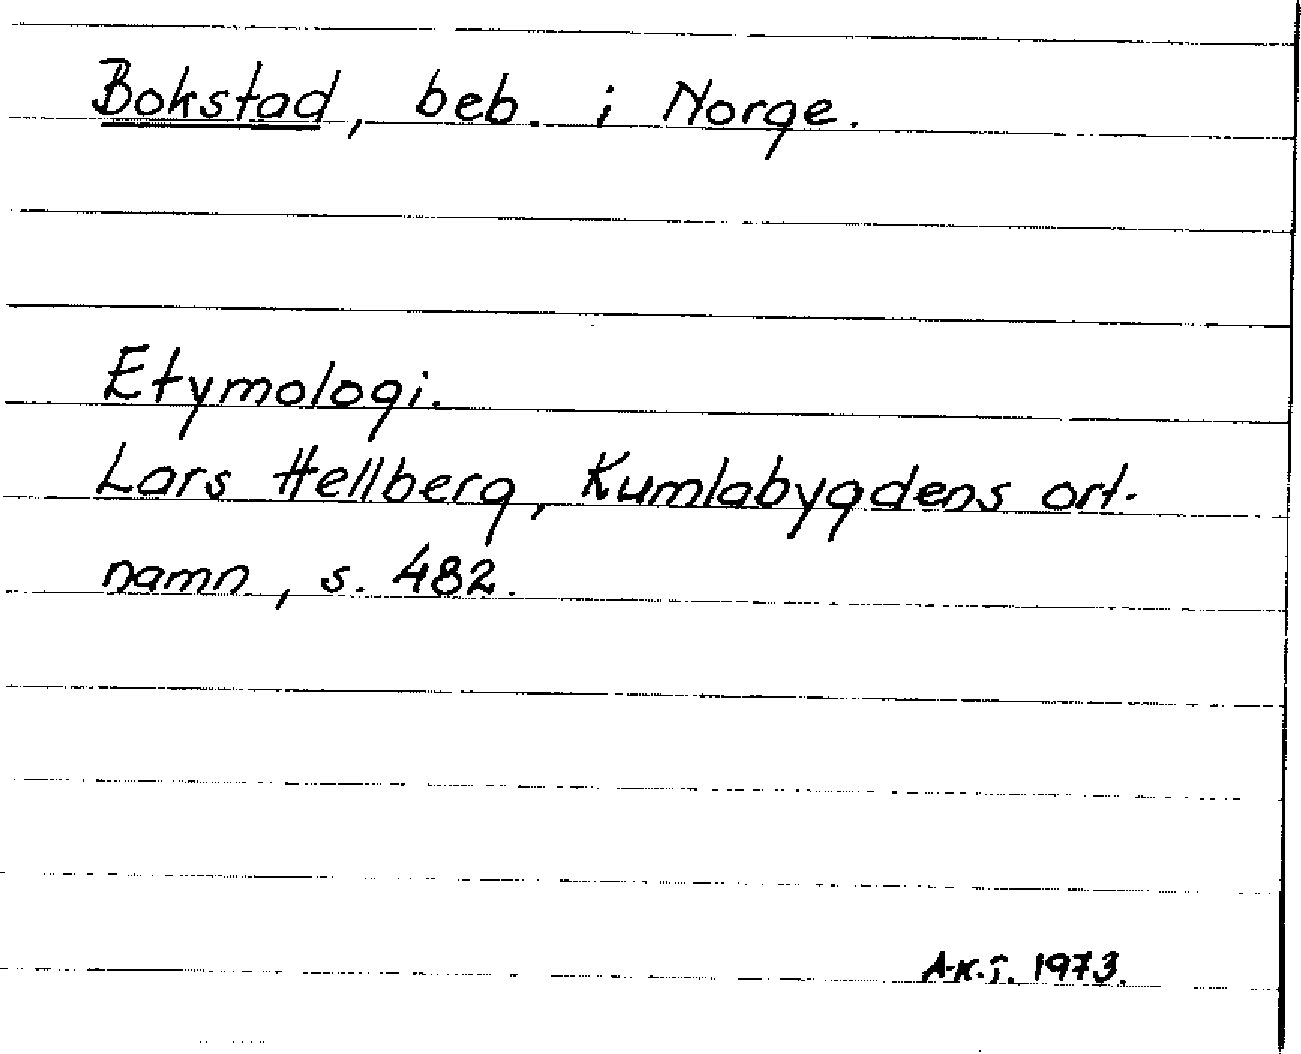 Bokstad, beb. i Norge.
Etymologi.
Lars Hellberg, Kumlabygdens ort-
namn, s. 482.
A-K.S. 1973.